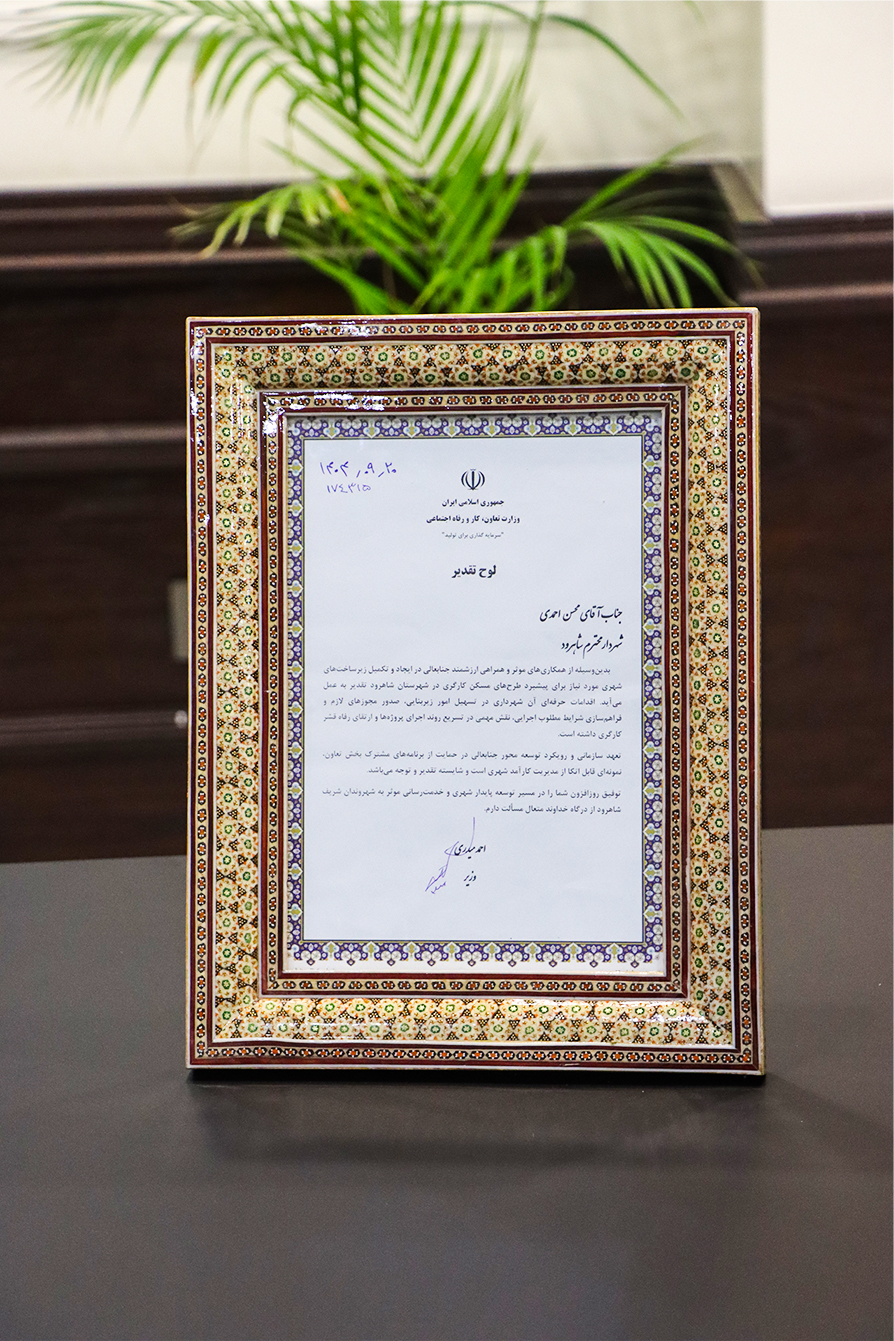 ۱۴۰۴٫۰۹٫۲۰
۱۷۴۳۱۵
جمهوری اسلامی ایران
وزارت تعاون، کار و رفاه اجتماعی
"سرمایه گذاری برای تولید"
لوح تقدیر
جناب آقای محسن احمدی
شهردار محترم شاهرود
بدین‌وسیله از همکاری‌های موثر و همراهی ارزشمند جنابعالی در ایجاد و تکمیل زیرساخت‌های
شهری مورد نیاز برای پیشبرد طرح‌های مسکن کارگری در شهرستان شاهرود تقدیر به عمل
می‌آید. اقدامات حرفه‌ای آن شهرداری در تسهیل امور زیربنایی، صدور مجوزهای لازم و
فراهم‌سازی شرایط مطلوب اجرایی، نقش مهمی در تسریع روند اجرای پروژه‌ها و ارتقای رفاه قشر
کارگری داشته است.
تعهد سازمانی و رویکرد توسعه محور جنابعالی در حمایت از برنامه‌های مشترک بخش تعاون،
نمونه‌ای قابل اتکا از مدیریت کارآمد شهری است و شایسته تقدیر و توجه می‌باشد.
توفیق روزافزون شما را در مسیر توسعه پایدار شهری و خدمت‌رسانی موثر به شهروندان شریف
شاهرود از درگاه خداوند متعال مسألت دارم.
احمد میدری
وزیر